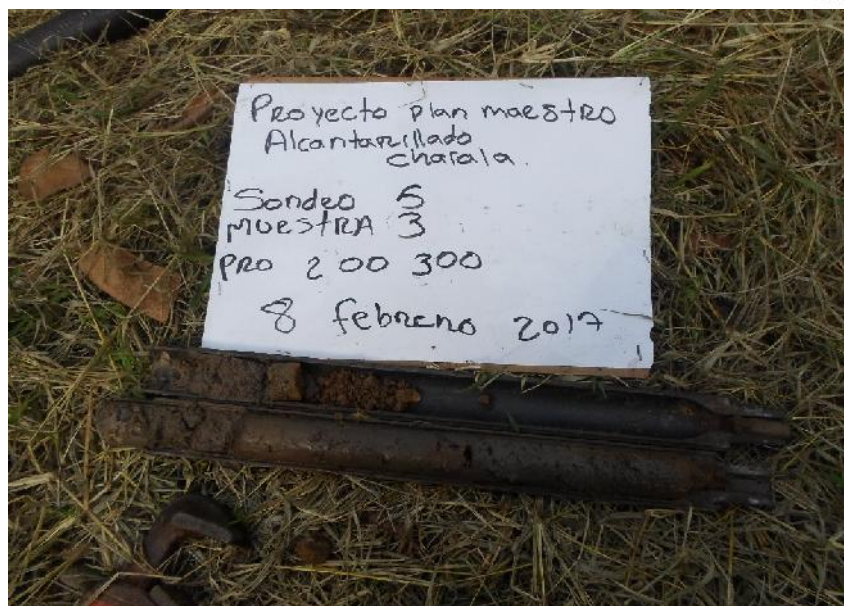 Proyecto plan maestro
Alcantarillado
charala.
Sondeo 5
MUESTRA 3
PRO 200 300
8 febrero 2017